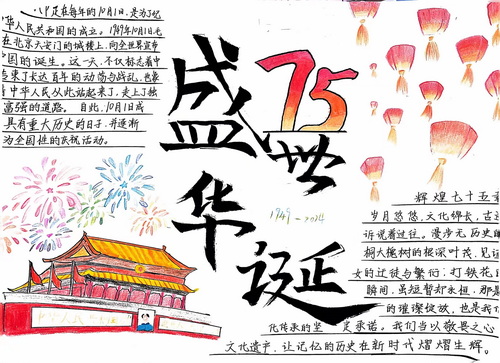 是在每年的10月1日,是为了纪
华人民共和国的成立。1949年10月1日,毛
在北京天安门的城楼上,向全世界宣布
国的诞生。这一天,不仅标志着中
结束了长达百年的动荡与战乱,也象
中华人民从此站起来了,走上了独
富强的道路。自此,10月1日成
具有重大历史的日子,并逐渐
为全国性的庆祝活动。
75
盛世
华诞
1949-2024
辉煌七十五
岁月悠悠,文化绵长,古
诉说着过往。漫步无历史的
桐大槐树的根深叶茂,见证
女的迁徒与繁衍;打铁花
瞬间,虽短暂却永恒,那是
的璀璨绽放,也是我
化传承的坚定承诺。我们当以敬畏之心
文化遗产,让记忆的历史在新时代熠熠生辉。